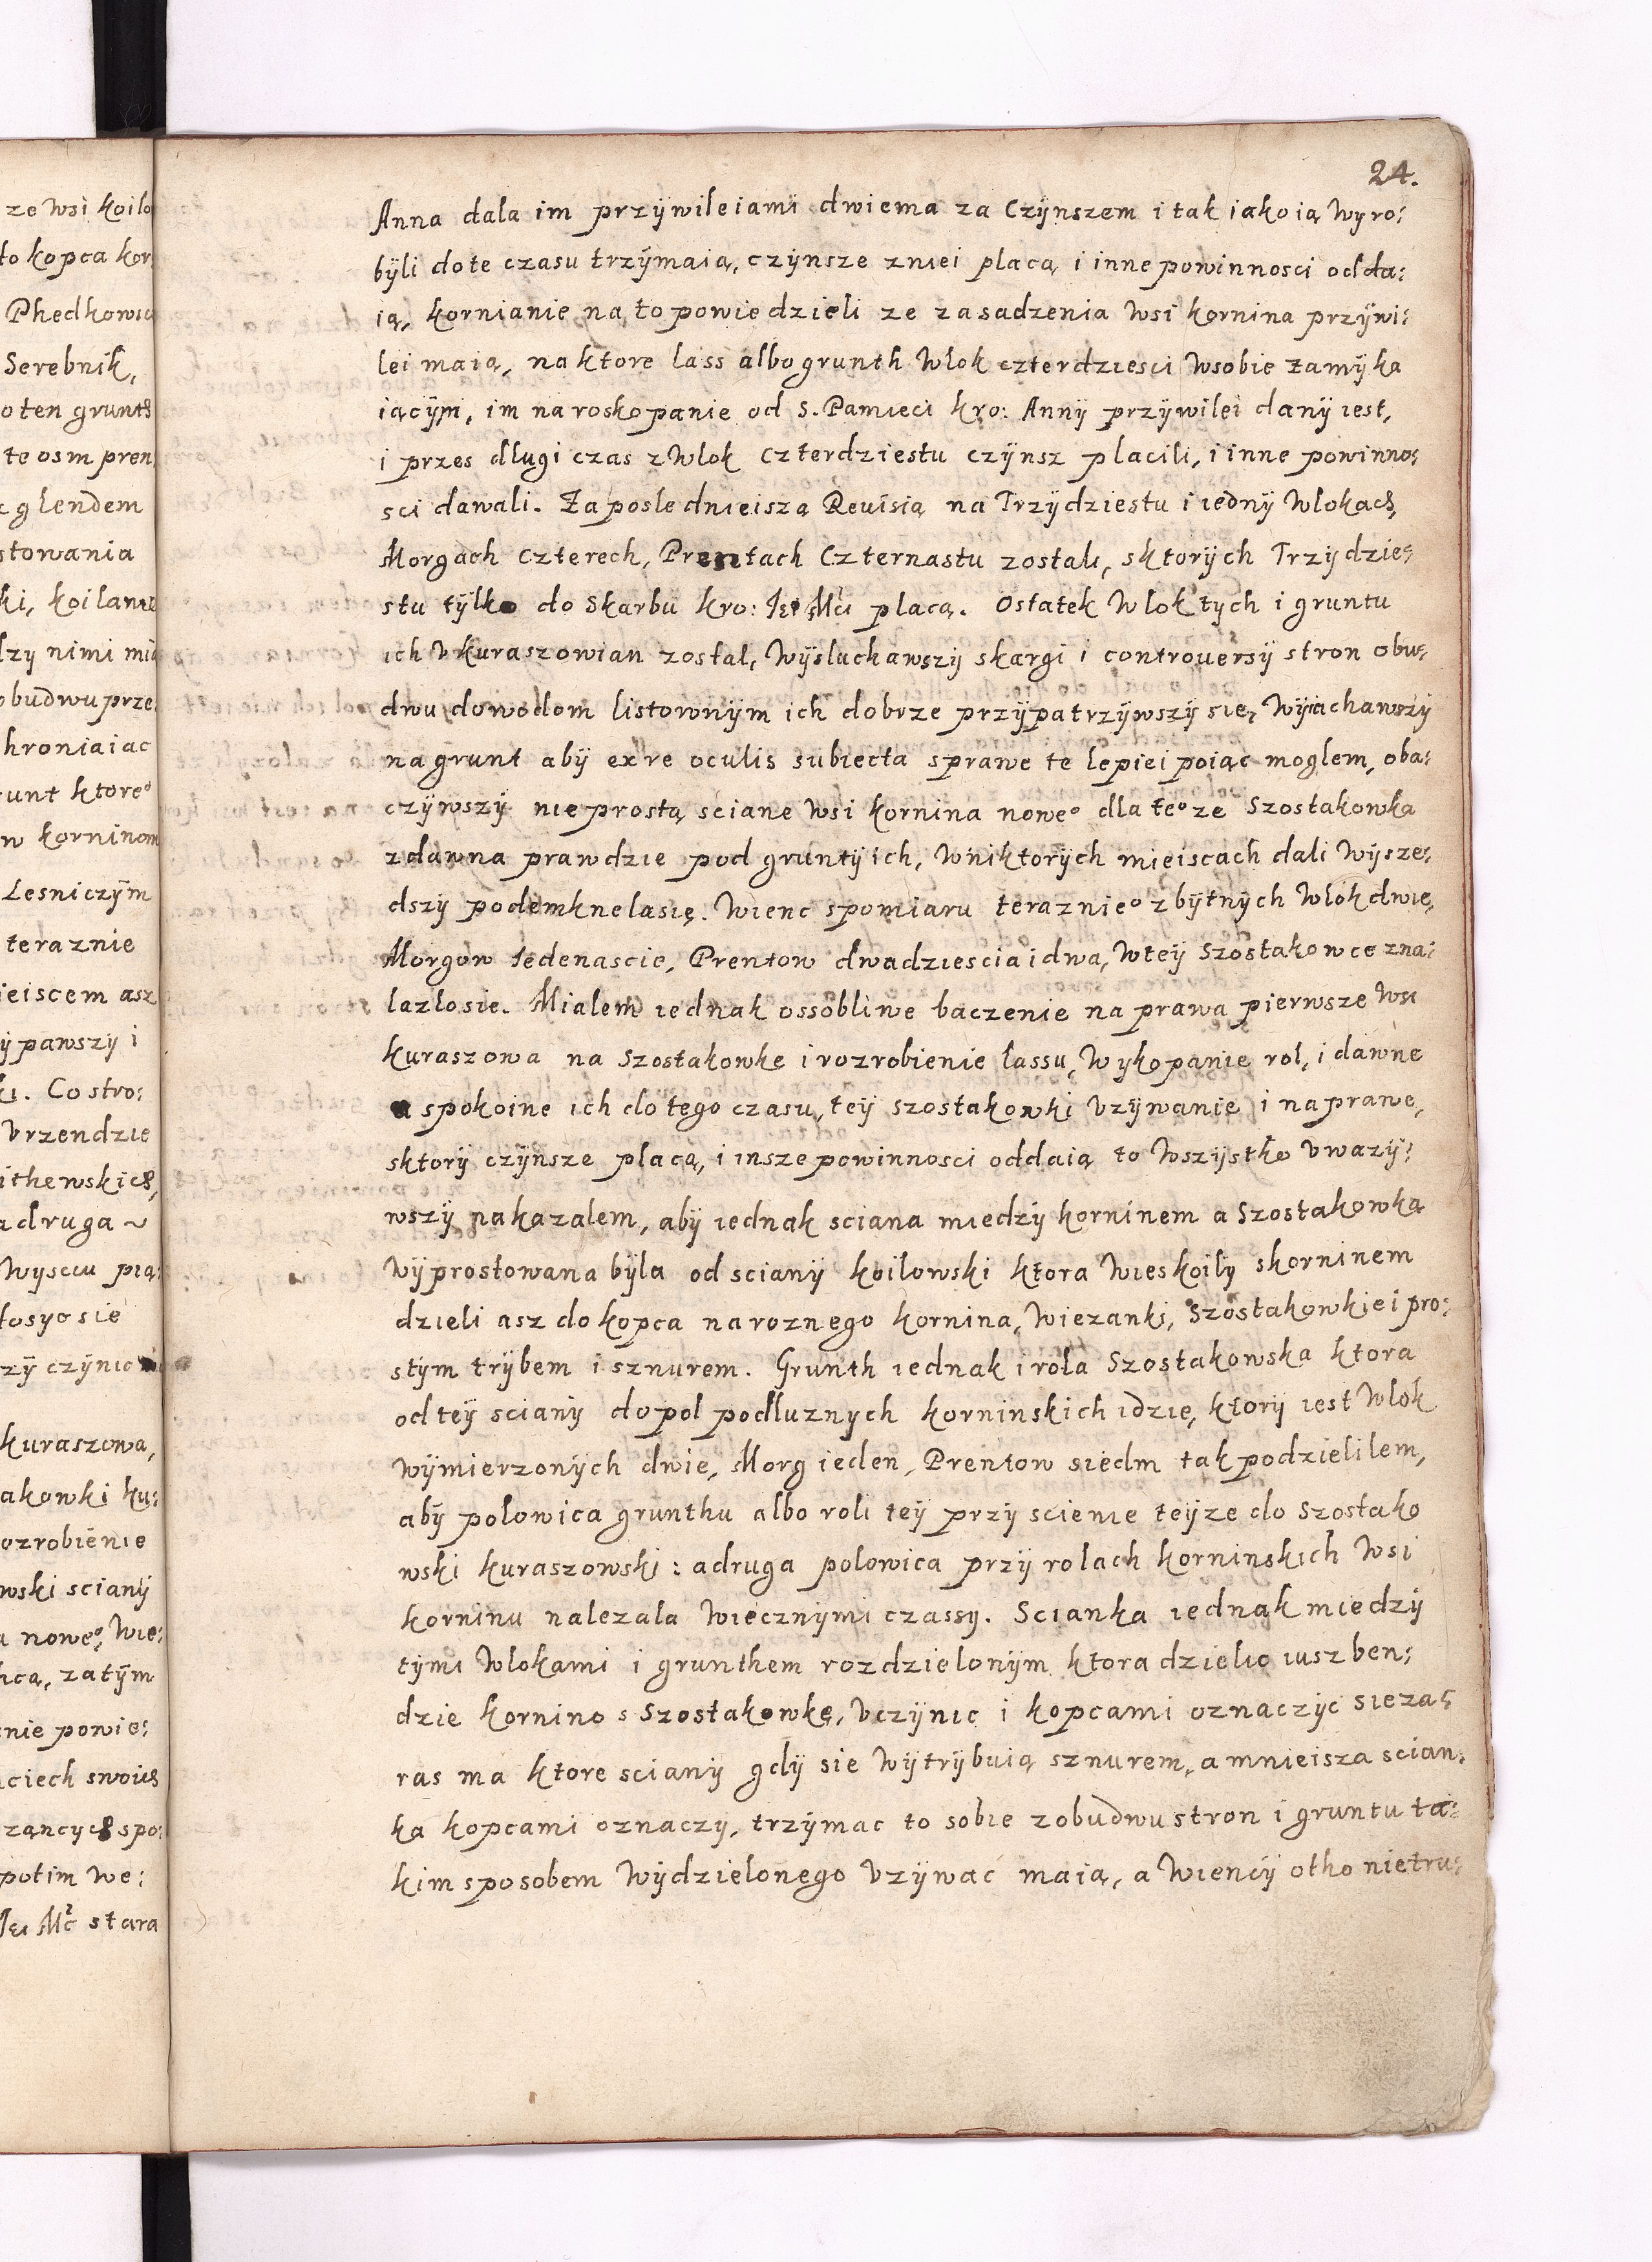 24.
Anna dala im przÿwileiami dwiema za Czÿnszem i tak iako ią wyro:
bÿli do te czasu trzÿmaią, czÿnsze zniei placą i inne powinnosci odda:
ią, Kornianie na to powiedzieli ze zasadzenia wsi Kornina przÿwi:
lei maią, na ktore lass albo grunth Wlok czterdziesci wsobie zamÿka
iącÿm, im na roskopanie od S. Pamieci Kro: Annÿ przÿwilei danÿ iest,
i przes dlugi czas z Wlok Czterdziestu czÿnsz placili, i inne powinno:
sci dawali. Za poslednieiszą Reuisią na Trzÿdziestu i iednÿ Wlokach,
Morgach Czterech, Prentach Czternastu zostali, sktorÿch Trzÿdzie:
stu tÿlko do Skarbu Kro: Jei Mci placą. Ostatek Wlok tych i gruntu
ich v Kuraszowian zostal, Wÿsluchawszÿ skargi i controuersÿ stron obu:
dwu dowodom listownÿm ich dobrze przÿpatrzÿwszÿ sie, Wÿiachawszÿ
na grunt abÿ ex re oculis subiecta sprawe te lepiei poiąc moglem, oba:
czÿwszÿ nie prostą sciane wsi Kornina noweº dla teº ze Szostakowka
zdawna prawdzie pod gruntÿ ich, Wniktorÿch mieiscach dali Wÿsze:
dszÿ podemknela się. Wienc spomiaru teraznieº zbÿtnÿch Wlok dwie,
Morgow Iedenascie, Prentow dwadziescia i dwa, Wteÿ Szostakowce zna:
lazlo sie. Mialem iednak ossobliwe baczenie na prawa pierwsze Wsi
Kuraszowa na Szostakowke i rozrobienie lassu, Wykopanie rol, i dawne
a spokoine ich do tego czasu, teÿ Szostakowki vzÿwanie i naprawe,
sktorÿ czÿnsze placą, i insze powinnosci oddaią to Wszÿstko vwazÿ:
wszÿ nakazalem, abÿ iednak sciana miedzÿ Korninem a Szostakowką
Wÿprostowana bÿla od scianÿ Koilowski ktora Wies Koily skorninem
dzieli asz do kopca naroznego Kornina, Wiezanki, Szostakowkiei pro:
stÿm trÿbem i sznurem. Grunth iednak i rola Szostakowska ktora
od teÿ scianÿ do pol podluznych Korninskich idzie, ktorÿ iest Wlok
wÿmierzonÿch dwie, Morg ieden, Prentow siedm tak podzielilem,
abÿ polowica grunthu albo roli teÿ przÿ scienie teÿze do Szostako
wski Kuraszowski: a druga polowica przÿ rolach Korninskich Wsi
Korninu nalezala Wiecznÿmi czassy. Scianka iednak miedzÿ
tÿmi Wlokami i grunthem rozdzielonÿm ktora dzielic iusz ben:
dzie Kornino s Szostakowkę, vczÿnic i kopcami oznaczÿc sie za:
ras ma ktore scianÿ gdÿ sie Wÿtrÿbuią sznurem, a mnieisza scian:
ka kopcami oznaczy, trzÿmac to sobie zobudwu stron i gruntu ta:
kim sposobem Wÿdzielonego vzÿwac maią, a Wiencÿ otho nietru: